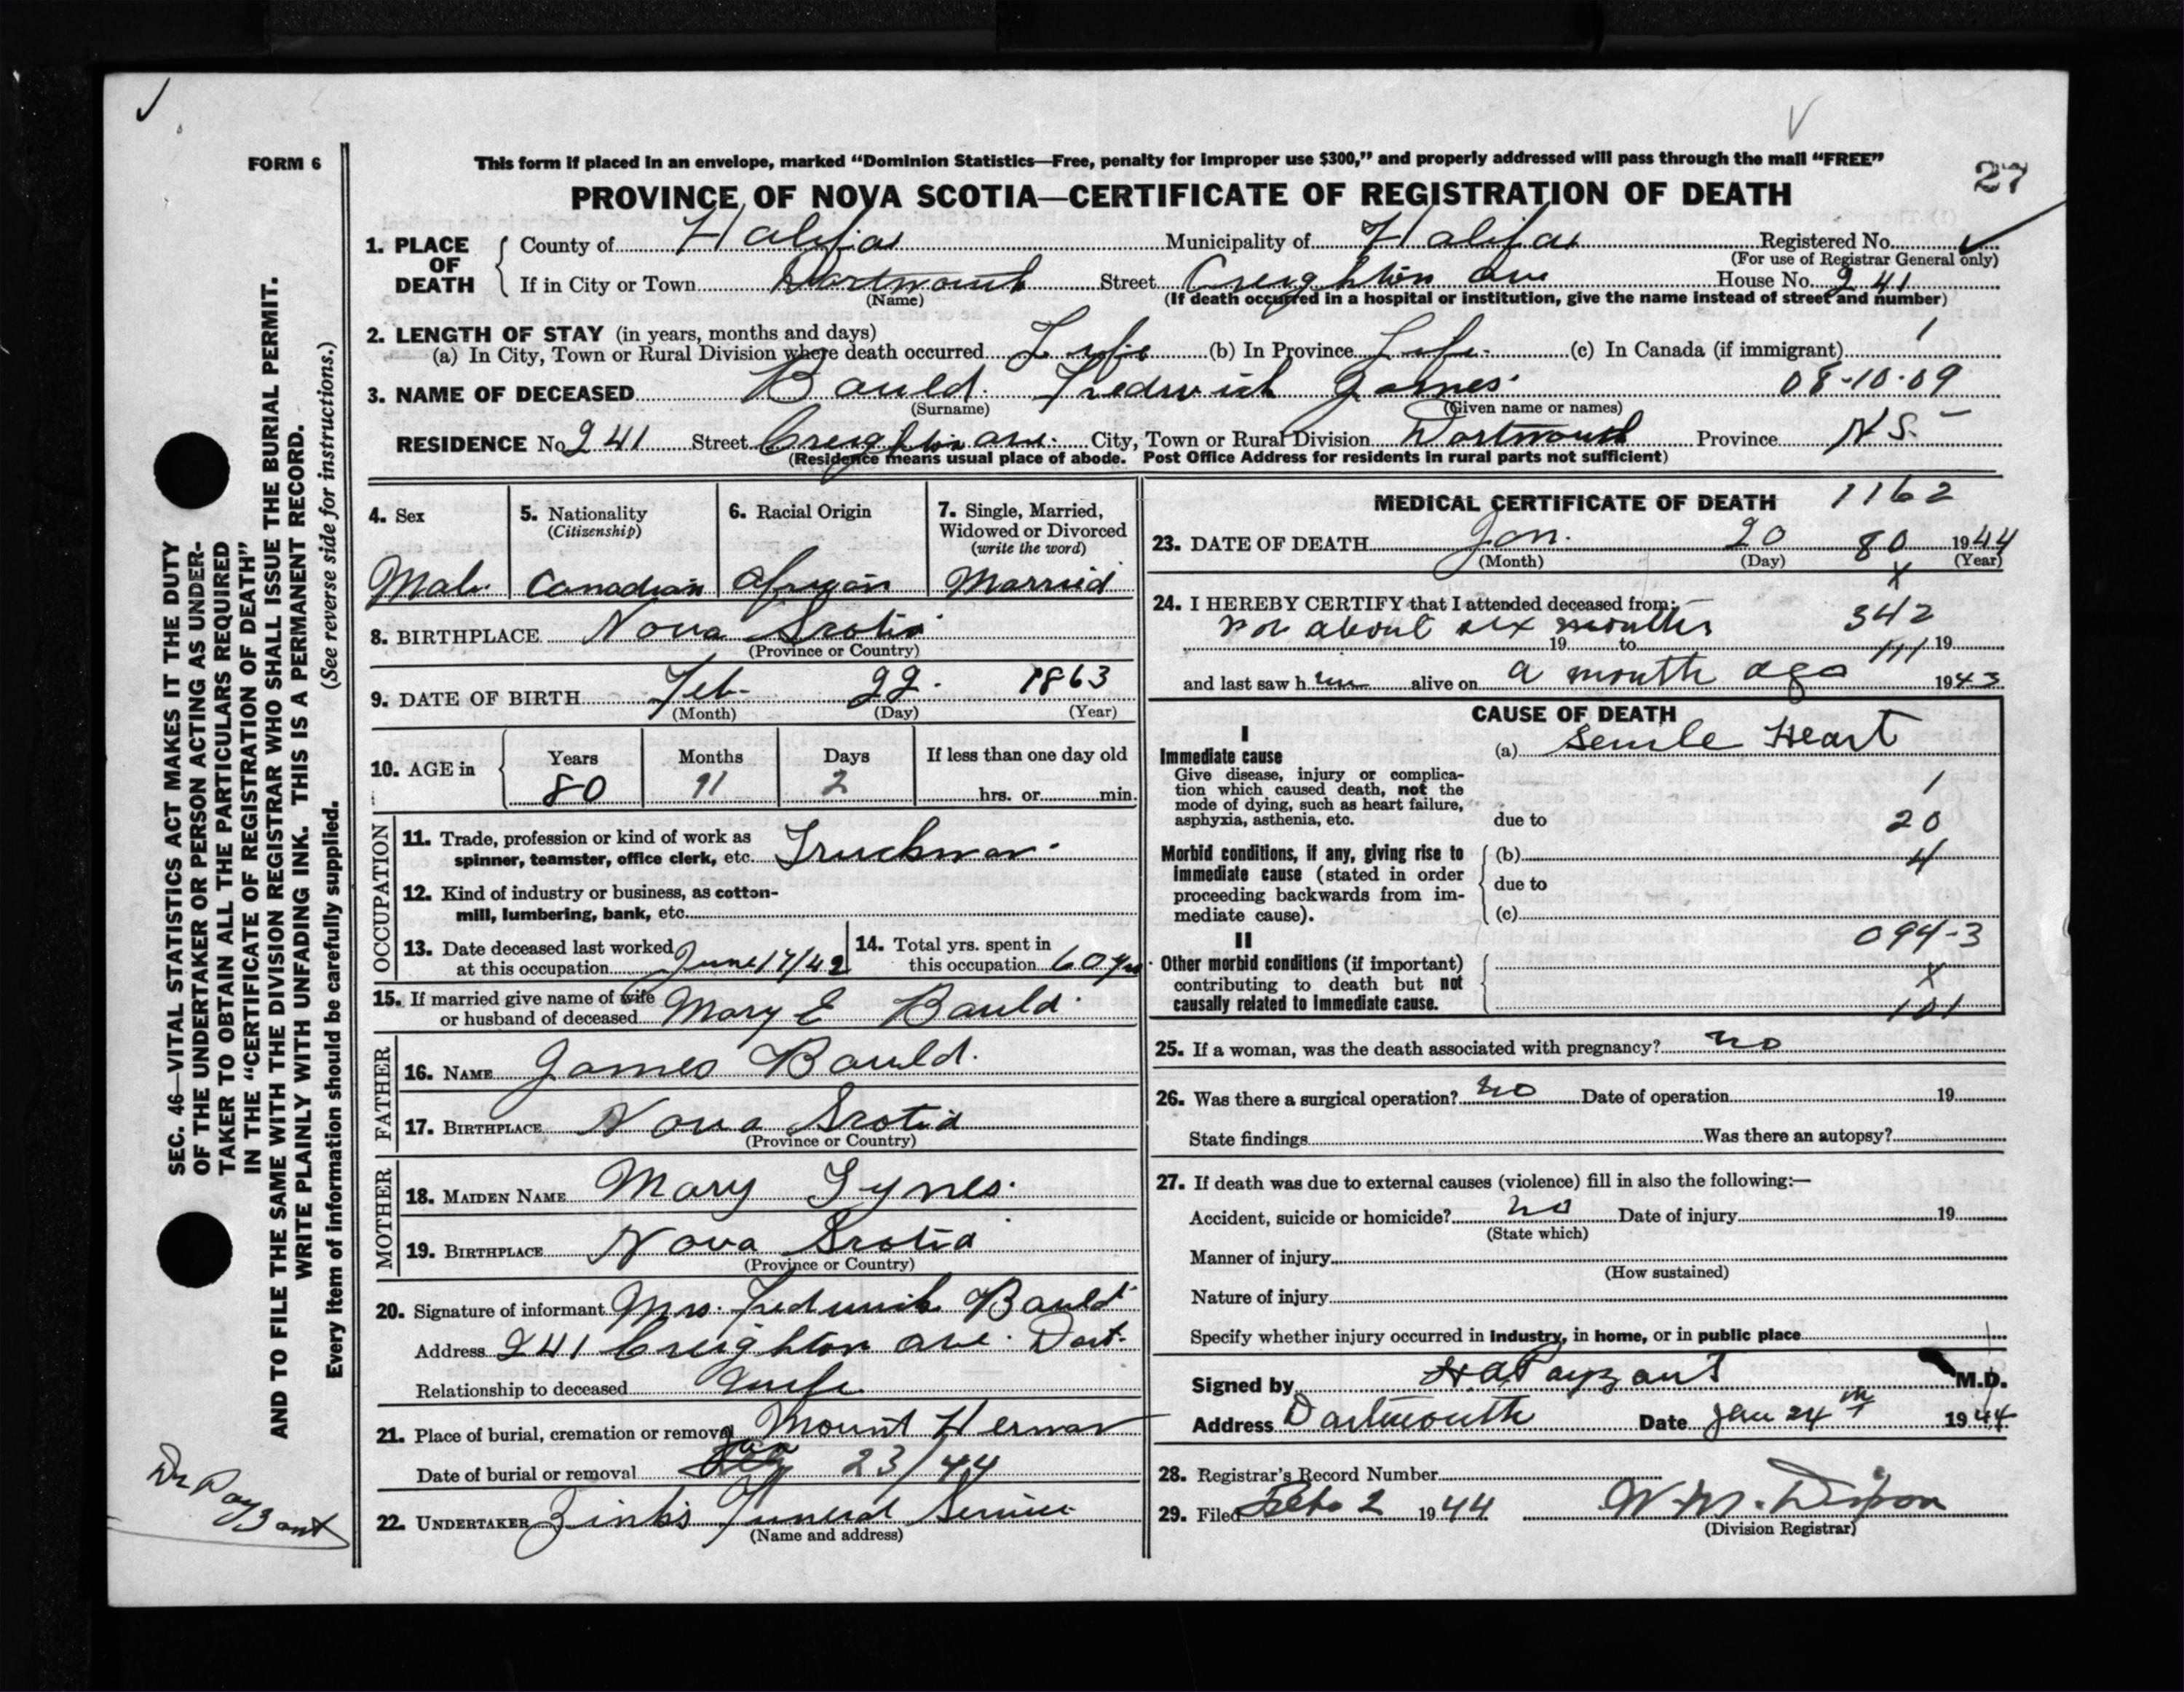 FORM 6
This form if placed in an envelope, marked “Dominion Statistics—Free, penalty for improper use $300,” and properly addressed will pass through the mail “FREE”
27
PROVINCE OF NOVA SCOTIA—CERTIFICATE OF REGISTRATION OF DEATH
1. PLACE OF DEATH County of Halifax Municipality of Halifax Registered No.
(For use of Registrar General only)
If in City or Town Dartmouth Street Creighton Ave House No. 241
(Name) (If death occurred in a hospital or institution, give the name instead of street and number)
2. LENGTH OF STAY (in years, months and days)
(a) In City, Town or Rural Division where death occurred Life (b) In Province Life. (c) In Canada (if immigrant) 1
3. NAME OF DECEASED Bauld. Fredrick James. 08-10-09
(Surname) (Given name or names)
RESIDENCE No 241 Street Creighton ave. City, Town or Rural Division Dartmouth Province N S.
(Residence means usual place of abode. Post Office Address for residents in rural parts not sufficient)
4. Sex
Male
5. Nationality
(Citizenship)
Canadian
6. Racial Origin
African
7. Single, Married,
Widowed or Divorced
(write the word)
Married
8. BIRTHPLACE Nova Scotia
(Province or Country)
9. DATE OF BIRTH Feb. 22. 1863
(Month) (Day) (Year)
10. AGE in Years Months Days If less than one day old
80 11 2 hrs. or min.
OCCUPATION
11. Trade, profession or kind of work as
spinner, teamster, office clerk, etc. Truckman.
12. Kind of industry or business, as cotton-
mill, lumbering, bank, etc.
13. Date deceased last worked
at this occupation June 17/42
14. Total yrs. spent in
this occupation 60 yrs
15. If married give name of wife
or husband of deceased Mary E Bauld.
FATHER
16. NAME James Bauld.
17. BIRTHPLACE Nova Scotia
(Province or Country)
MOTHER
18. MAIDEN NAME Mary Tynes.
19. BIRTHPLACE Nova Scotia
(Province or Country)
20. Signature of informant Mrs. Fredrick Bauld
Address 241 Creighton ave. Dart.
Relationship to deceased Wife
21. Place of burial, cremation or removal Mount Herman
Date of burial or removal Jan 23/44
22. UNDERTAKER Zink's Funeral Service
(Name and address)
MEDICAL CERTIFICATE OF DEATH 1162
23. DATE OF DEATH Jan. 20 80 1944
(Month) (Day) (Year)
X
24. I HEREBY CERTIFY that I attended deceased from:
about six months 342
19 to 19
111
and last saw him alive on a month ago 1943
CAUSE OF DEATH
I
Immediate cause (a) Senile Heart
Give disease, injury or complica-
tion which caused death, not the
mode of dying, such as heart failure,
asphyxia, asthenia, etc. due to
1
20
4
Morbid conditions, if any, giving rise to
immediate cause (stated in order
proceeding backwards from im-
mediate cause).
(b)
due to
(c)
II
094-3
Other morbid conditions (if important)
contributing to death but not
causally related to immediate cause.
X
101
25. If a woman, was the death associated with pregnancy? no
26. Was there a surgical operation? no Date of operation 19
State findings Was there an autopsy?
27. If death was due to external causes (violence) fill in also the following:—
Accident, suicide or homicide? no Date of injury 19
(State which)
Manner of injury
(How sustained)
Nature of injury
Specify whether injury occurred in industry, in home, or in public place
Signed by H.A Payzant M.D.
Address Dartmouth Date Jan 24th 1944
28. Registrar's Record Number
29. Filed Feb. 2 1944 W. M. Dixon
(Division Registrar)
SEC. 46—VITAL STATISTICS ACT MAKES IT THE DUTY
OF THE UNDERTAKER OR PERSON ACTING AS UNDER-
TAKER TO OBTAIN ALL THE PARTICULARS REQUIRED
IN THE “CERTIFICATE OF REGISTRATION OF DEATH”
AND TO FILE THE SAME WITH THE DIVISION REGISTRAR WHO SHALL ISSUE THE BURIAL PERMIT.
WRITE PLAINLY WITH UNFADING INK. THIS IS A PERMANENT RECORD.
Every item of information should be carefully supplied. (See reverse side for instructions.)
Dr Payzant